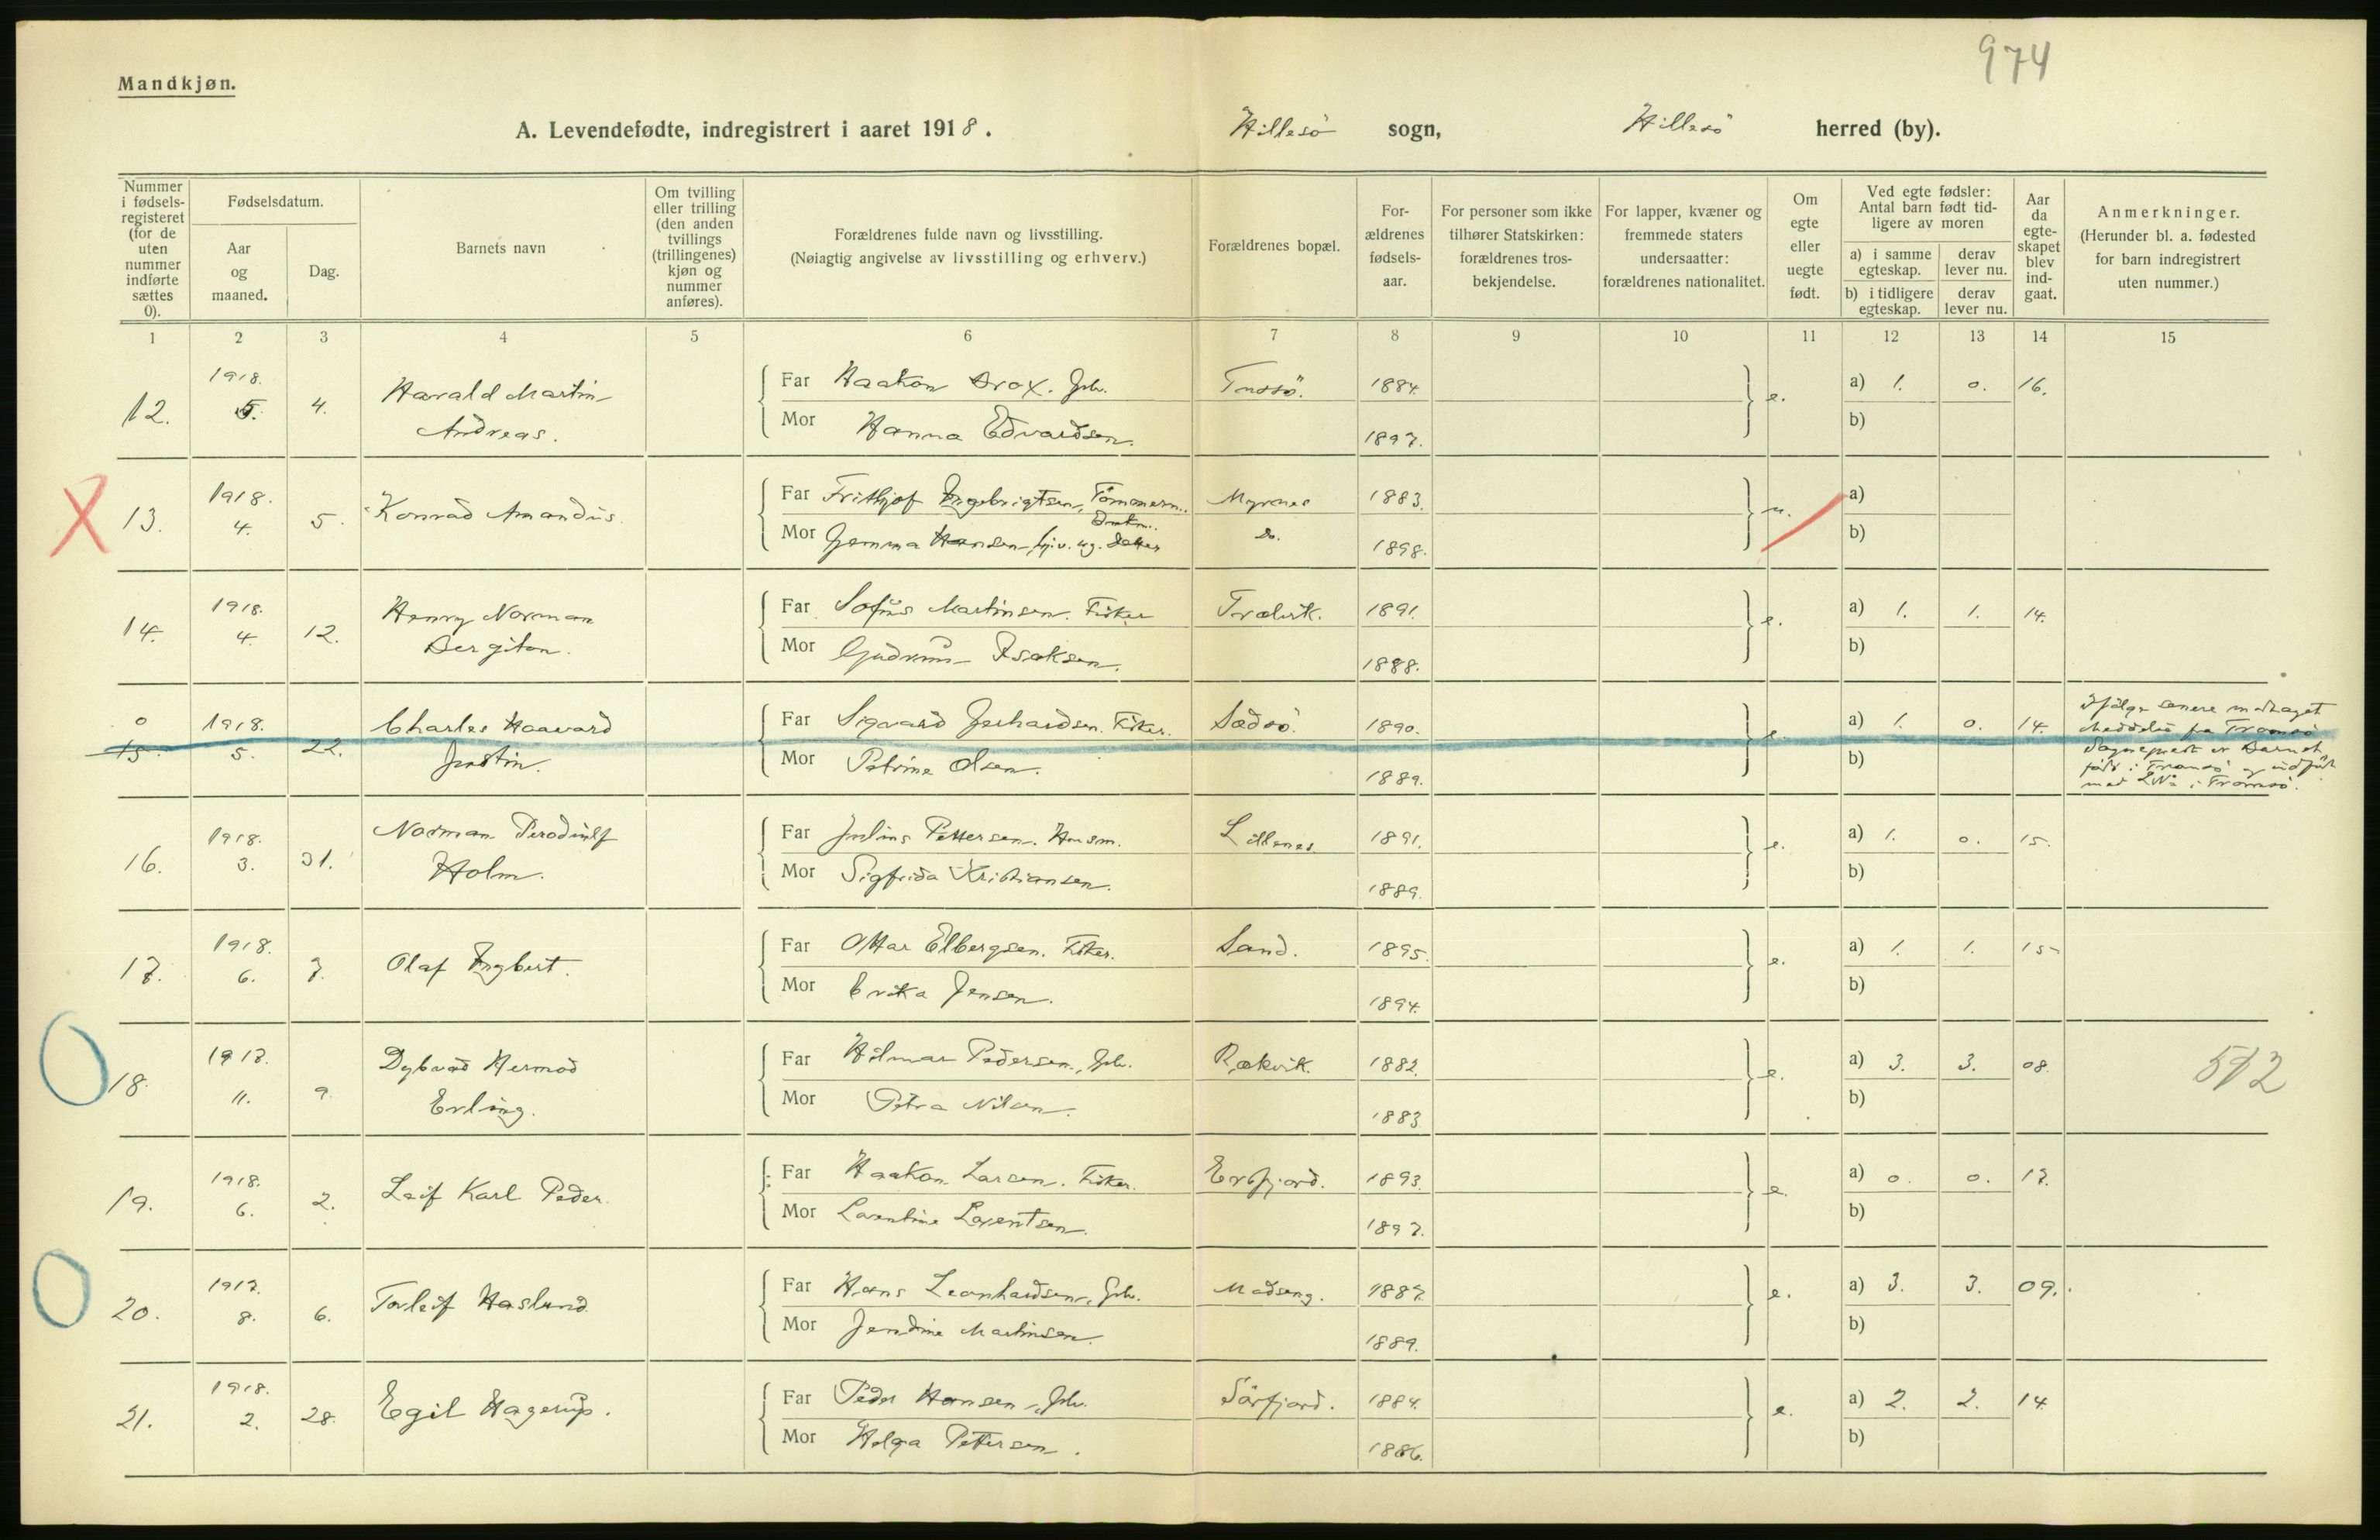 974
Mandkjøn.
A. Levendefødte, indregistrert i aaret 1918. Hillesö sogn, Hillesö herred (by).
Nummer i fødselsregisteret (for de uten nummer indførte sættes 0).
Fødselsdatum.
Aar og maaned.
Dag.
Barnets navn
Om tvilling eller trilling (den anden tvillings (trillingenes) kjøn og nummer anføres).
Forældrenes fulde navn og livsstilling.
(Nøiagtig angivelse av livsstilling og erhverv.)
Forældrenes bopæl.
Forældrenes fødselsaar.
For personer som ikke tilhører Statskirken: forældrenes trosbekjendelse.
For lapper, kvæner og fremmede staters undersaatter: forældrenes nationalitet.
Om egte eller uegte født.
Ved egte fødsler: Antal barn født tidligere av moren
a) i samme egteskap. derav lever nu.
b) i tidligere egteskap. derav lever nu.
Aar da egteskapet blev indgaat.
Anmerkninger.
(Herunder bl. a. fødested for barn indregistrert uten nummer.)
1 2 3 4 5 6 7 8 9 10 11 12 13 14 15
12. 1918. 5. 4. Harald Martin Andreas.
Far Haakon Brox. Gbr. 1884. e. a) 1. 0. 16.
Mor Hanna Edvardsen. 1897. b)
13. 1918. 4. 5. Konrad Amandus.
Far Frithjof Ingebrigtsen, Tömmerm. Myrnes 1883. u. a)
Mor Gemma Hansen, Do. 1898. b)
14. 1918. 4. 12. Henry Norman Bergiton.
Far Sofus Martinsen. Fisker Trælvik. 1891. e. a) 1. 1. 14.
Mor Gudrun Isaksen. 1888. b)
0 15. 1918. 5. 22. Charles Haavard Justin.
Far Sigvard Gerhardsen. Fisker. 1890. e. a) 1. 0. 14.
Mor Petrine Olsen. 1889. b)
Ifölge senere mottaget
Meddelelse fra Tromsö
Sogneprest er Barnet
född i Tromsö og indfört
med LNo i Tromsö.
16. 1918. 3. 31. Norman Holm.
Far Julius Pettersen. Husm. Lillenes 1891. e. a) 1. 0. 15.
Mor Sigfrida Kristiansen. 1889. b)
17. 1918. 6. 7. Olaf Ingbert.
Far Ottar Elbergsen. Fisker. Sand. 1895. e. a) 1. 1. 15
Mor Erika Jensen. 1894. b)
18. 1917. 11. 9. Dybvad Hermod Erling.
Far Hilmar Pedersen, Gbr. Rækvik. 1882. e. a) 3. 3. 08. 512
Mor Petra Nilsen. 1883 b)
19. 1918. 6. 2. Leif Karl Peder.
Far Haakon Larsen. Fisker. Ersfjord. 1893. e. a) 0. 0. 17.
Mor Laventine Lorentsen. 1897. b)
20. 1917. 8. 6. Torleif Haslund
Far Hans Leonhardsen, Gbr. Madseng. 1887. e. a) 3. 3. 09.
Mor Jendine Martinsen. 1889. b)
21. 1918. 2. 28. Egil Hagerup.
Far Peder Hansen, Gbr. Sörfjord. 1884. e. a) 2. 2. 14
Mor Helga Pettersen. 1886. b)